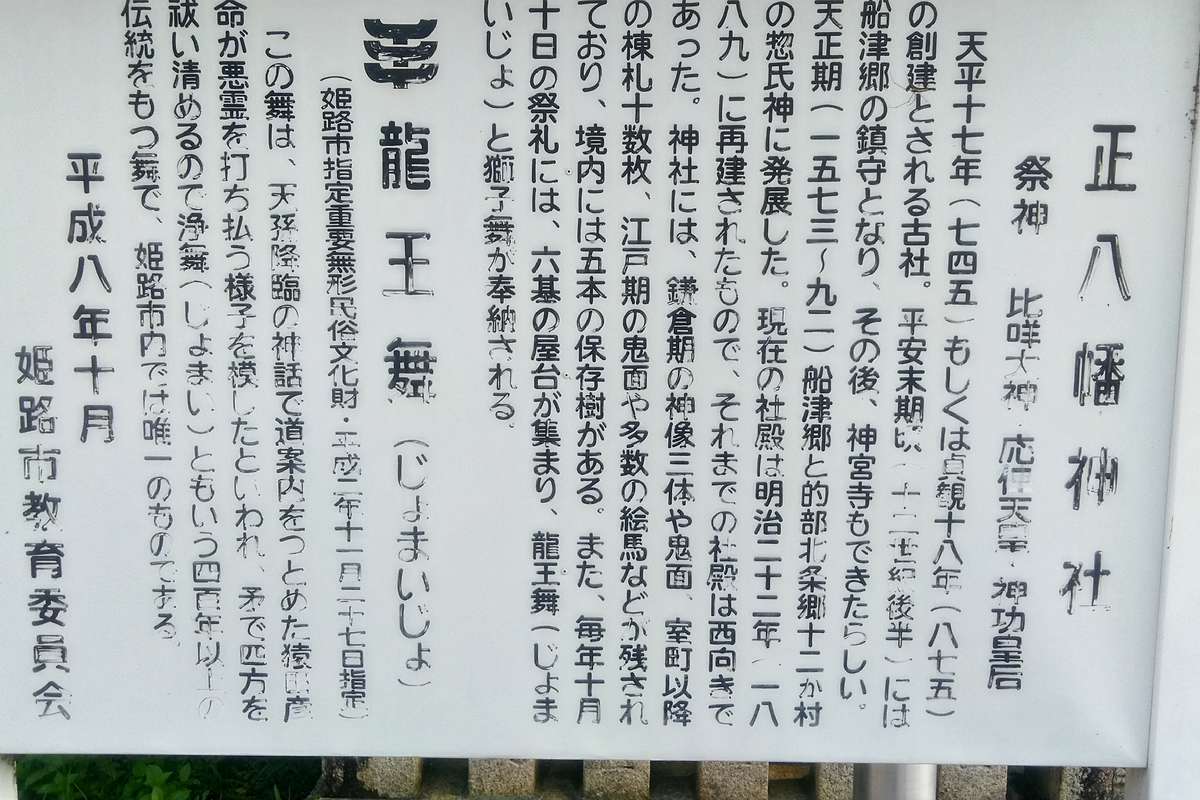 正八幡神社
祭神　比咩大神・応神天皇・神功皇后
天平十七年（七四五）もしくは貞観十八年（八七五）
の創建とされる古社。平安末期頃（十二世紀後半）には
船津郷の鎮守となり、その後、神宮寺もできたらしい。
天正期（一五七三～九二）船津郷と的部北条郷十二か村
の惣氏神に発展した。現在の社殿は明治二十二年（一八
八九）に再建されたもので、それまでの社殿は西向きで
あった。神社には、鎌倉期の神像三体や鬼面、室町以降
の棟札十数枚、江戸期の鬼面や多数の絵馬などが残され
ており、境内には五本の保存樹がある。また、毎年十月
十日の祭礼には、六基の屋台が集まり、龍王舞（じょま
いじょ）と獅子舞が奉納される。
龍王舞（じょまいじょ）
（姫路市指定重要無形民俗文化財・平成二年十一月二十七日指定）
この舞は、天孫降臨の神話で道案内をつとめた猿田彦
命が悪霊を打ち払う様子を模したといわれ、矛で四方を
祓い清めるので浄舞（じょまい）ともいう四百年以上の
伝統をもつ舞で、姫路市内では唯一のものである。
平成八年十月
姫路市教育委員会